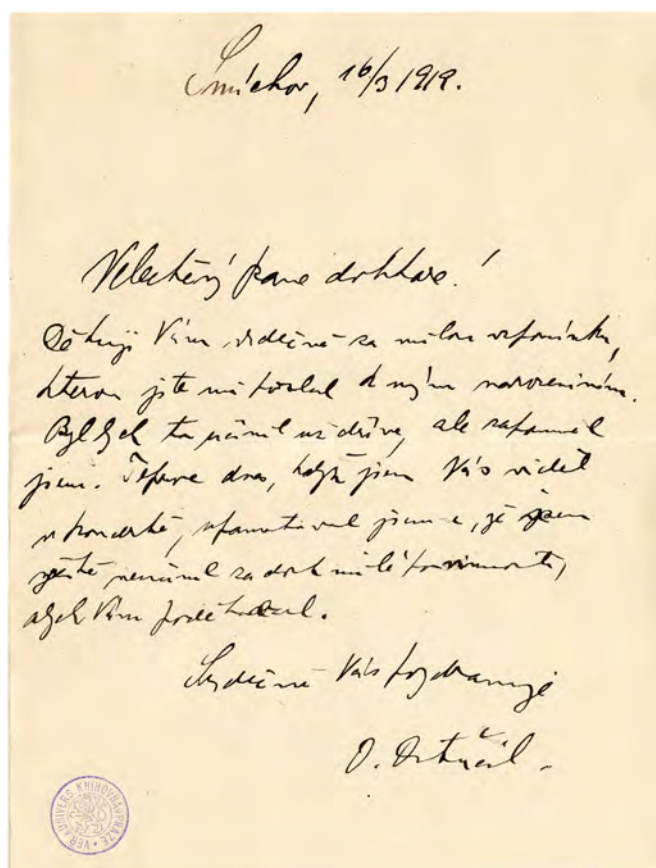 Smíchov, 16/3 1919.
Velectěný pane doktore!
Děkuji Vám srdečně za milou vzpomínku,
kterou jste mi poslal k mým narozeninám.
Byl bych to učinil už dříve, ale zapomněl
jsem. Teprve dnes, když jsem Vás viděl
v koncertě, vzpamatoval jsem se, že jsem
ještě neučinil za dost milé povinnosti,
abych Vám poděkoval.
Srdečně Vás pozdravuje
O. Ostrčil.
VEŘ.A UNIVERS KNIHOVNA V PRAZE